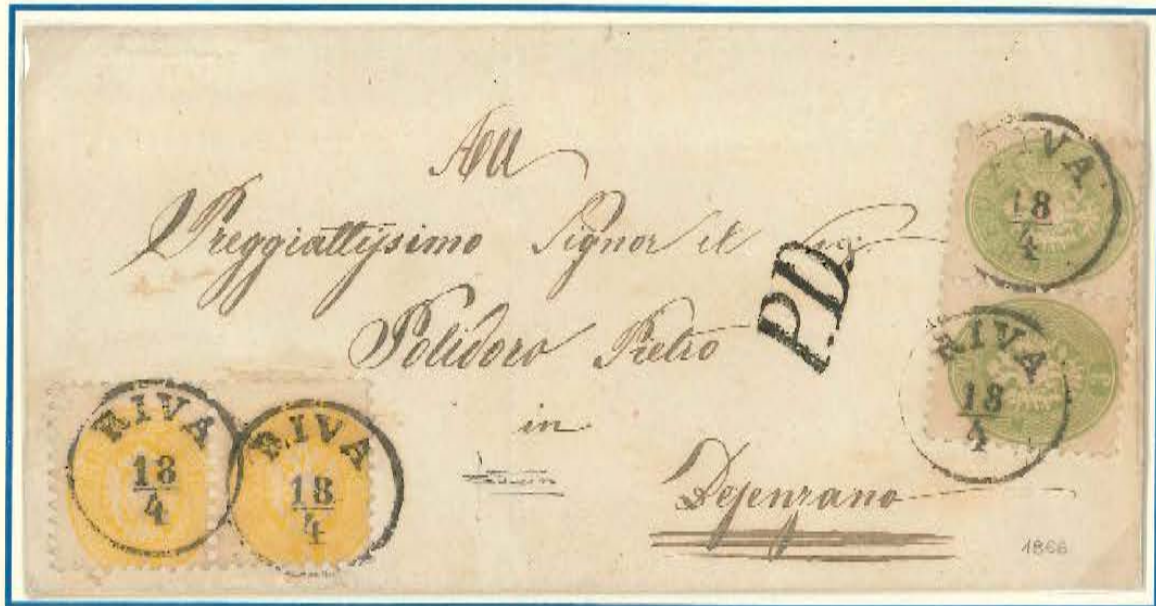 All
Preggiattissimo Signor il Sig:
Polidoro Pietro
in
Desenzano
P.D.
RIVA
18
4
RIVA
18
4
RIVA
18
4
RIVA
18
4
1866